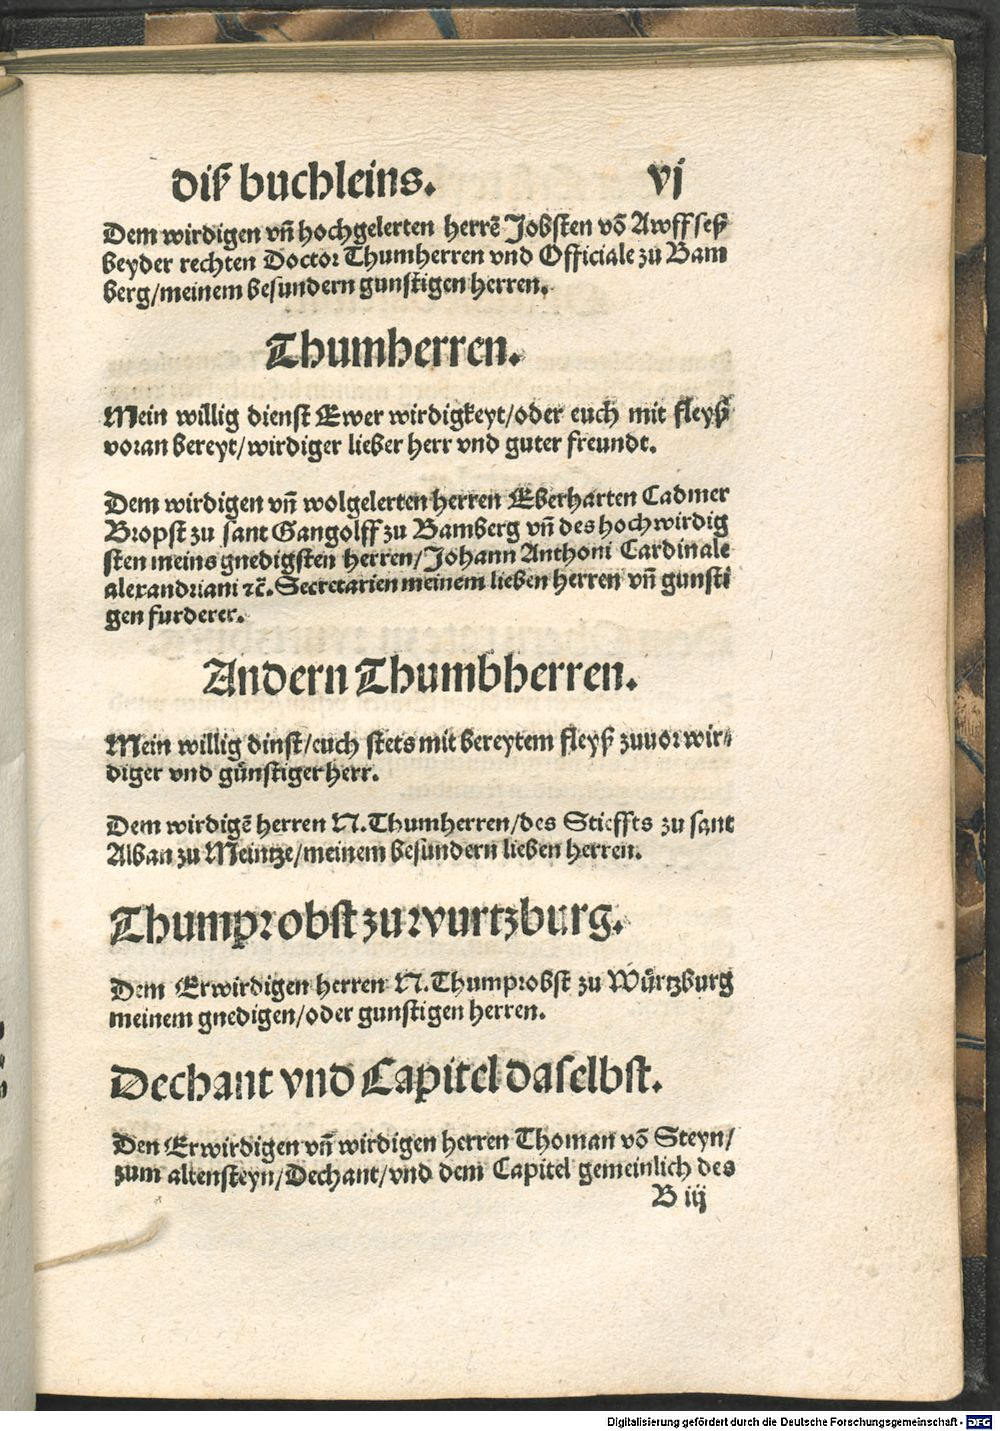 diß buchleins. vj
Dem wirdigen vñ hochgelerten herrẽ Jobsten võ Awffseß
beyder rechten Doctor Thumherren vnd Officiale zu Bam
berg/meinem besundern gunstigen herren.
Thumherren.
Mein willig dienst Ewer wirdigkeyt/oder euch mit fleyß
voran bereyt/wirdiger lieber herr vnd guter freundt.
Dem wirdigen vñ wolgelerten herren Eberharten Cadmer
Bropst zu sant Gangolff zu Bamberg vñ des hochwirdig
sten meins gnedigsten herren/Johann Anthoni Cardinale
alexandriani ꝛc̃. Secretarien meinem lieben herren vñ gunsti
gen furderer.
Andern Thumbherren.
Mein willig dinst/euch stets mit bereytem fleyß zuuor wir⸗
diger vnd gůnstiger herr.
Dem wirdigẽ herren N. Thumherren/des Stieffts zu sant
Alban zu Meintze/meinem besundern lieben herren.
Thumprobst zu wurtzburg.
Dem Erwirdigen herren N. Thumprobst zu Wůrtzburg
meinem gnedigen/oder gunstigen herren.
Dechant vnd Capitel daselbst.
Den Erwirdigen vñ wirdigen herren Thoman võ Steyn/
zum altensteyn/Dechant/vnd dem Capitel gemeinlich des
B iij
Digitalisierung gefördert durch die Deutsche Forschungsgemeinschaft - DFG